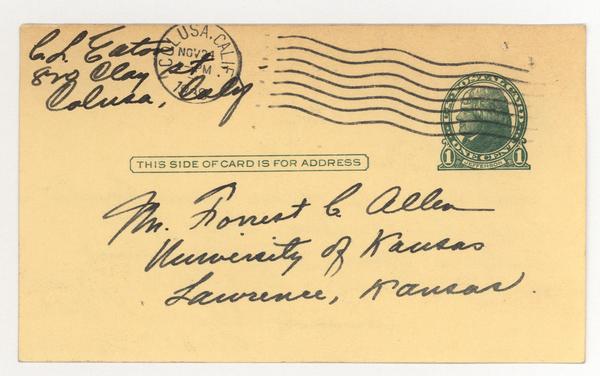 C. L. Eaton
Clay st
Colusa, Caly
COLUSA, CALIF.
NOV 24
PM
U.S. POSTAL CARD
1 ONE CENT 1
JEFFERSON
THIS SIDE OF CARD IS FOR ADDRESS
Mr. Forrest C. Allen
University of Kansas
Lawrence, Kansas.